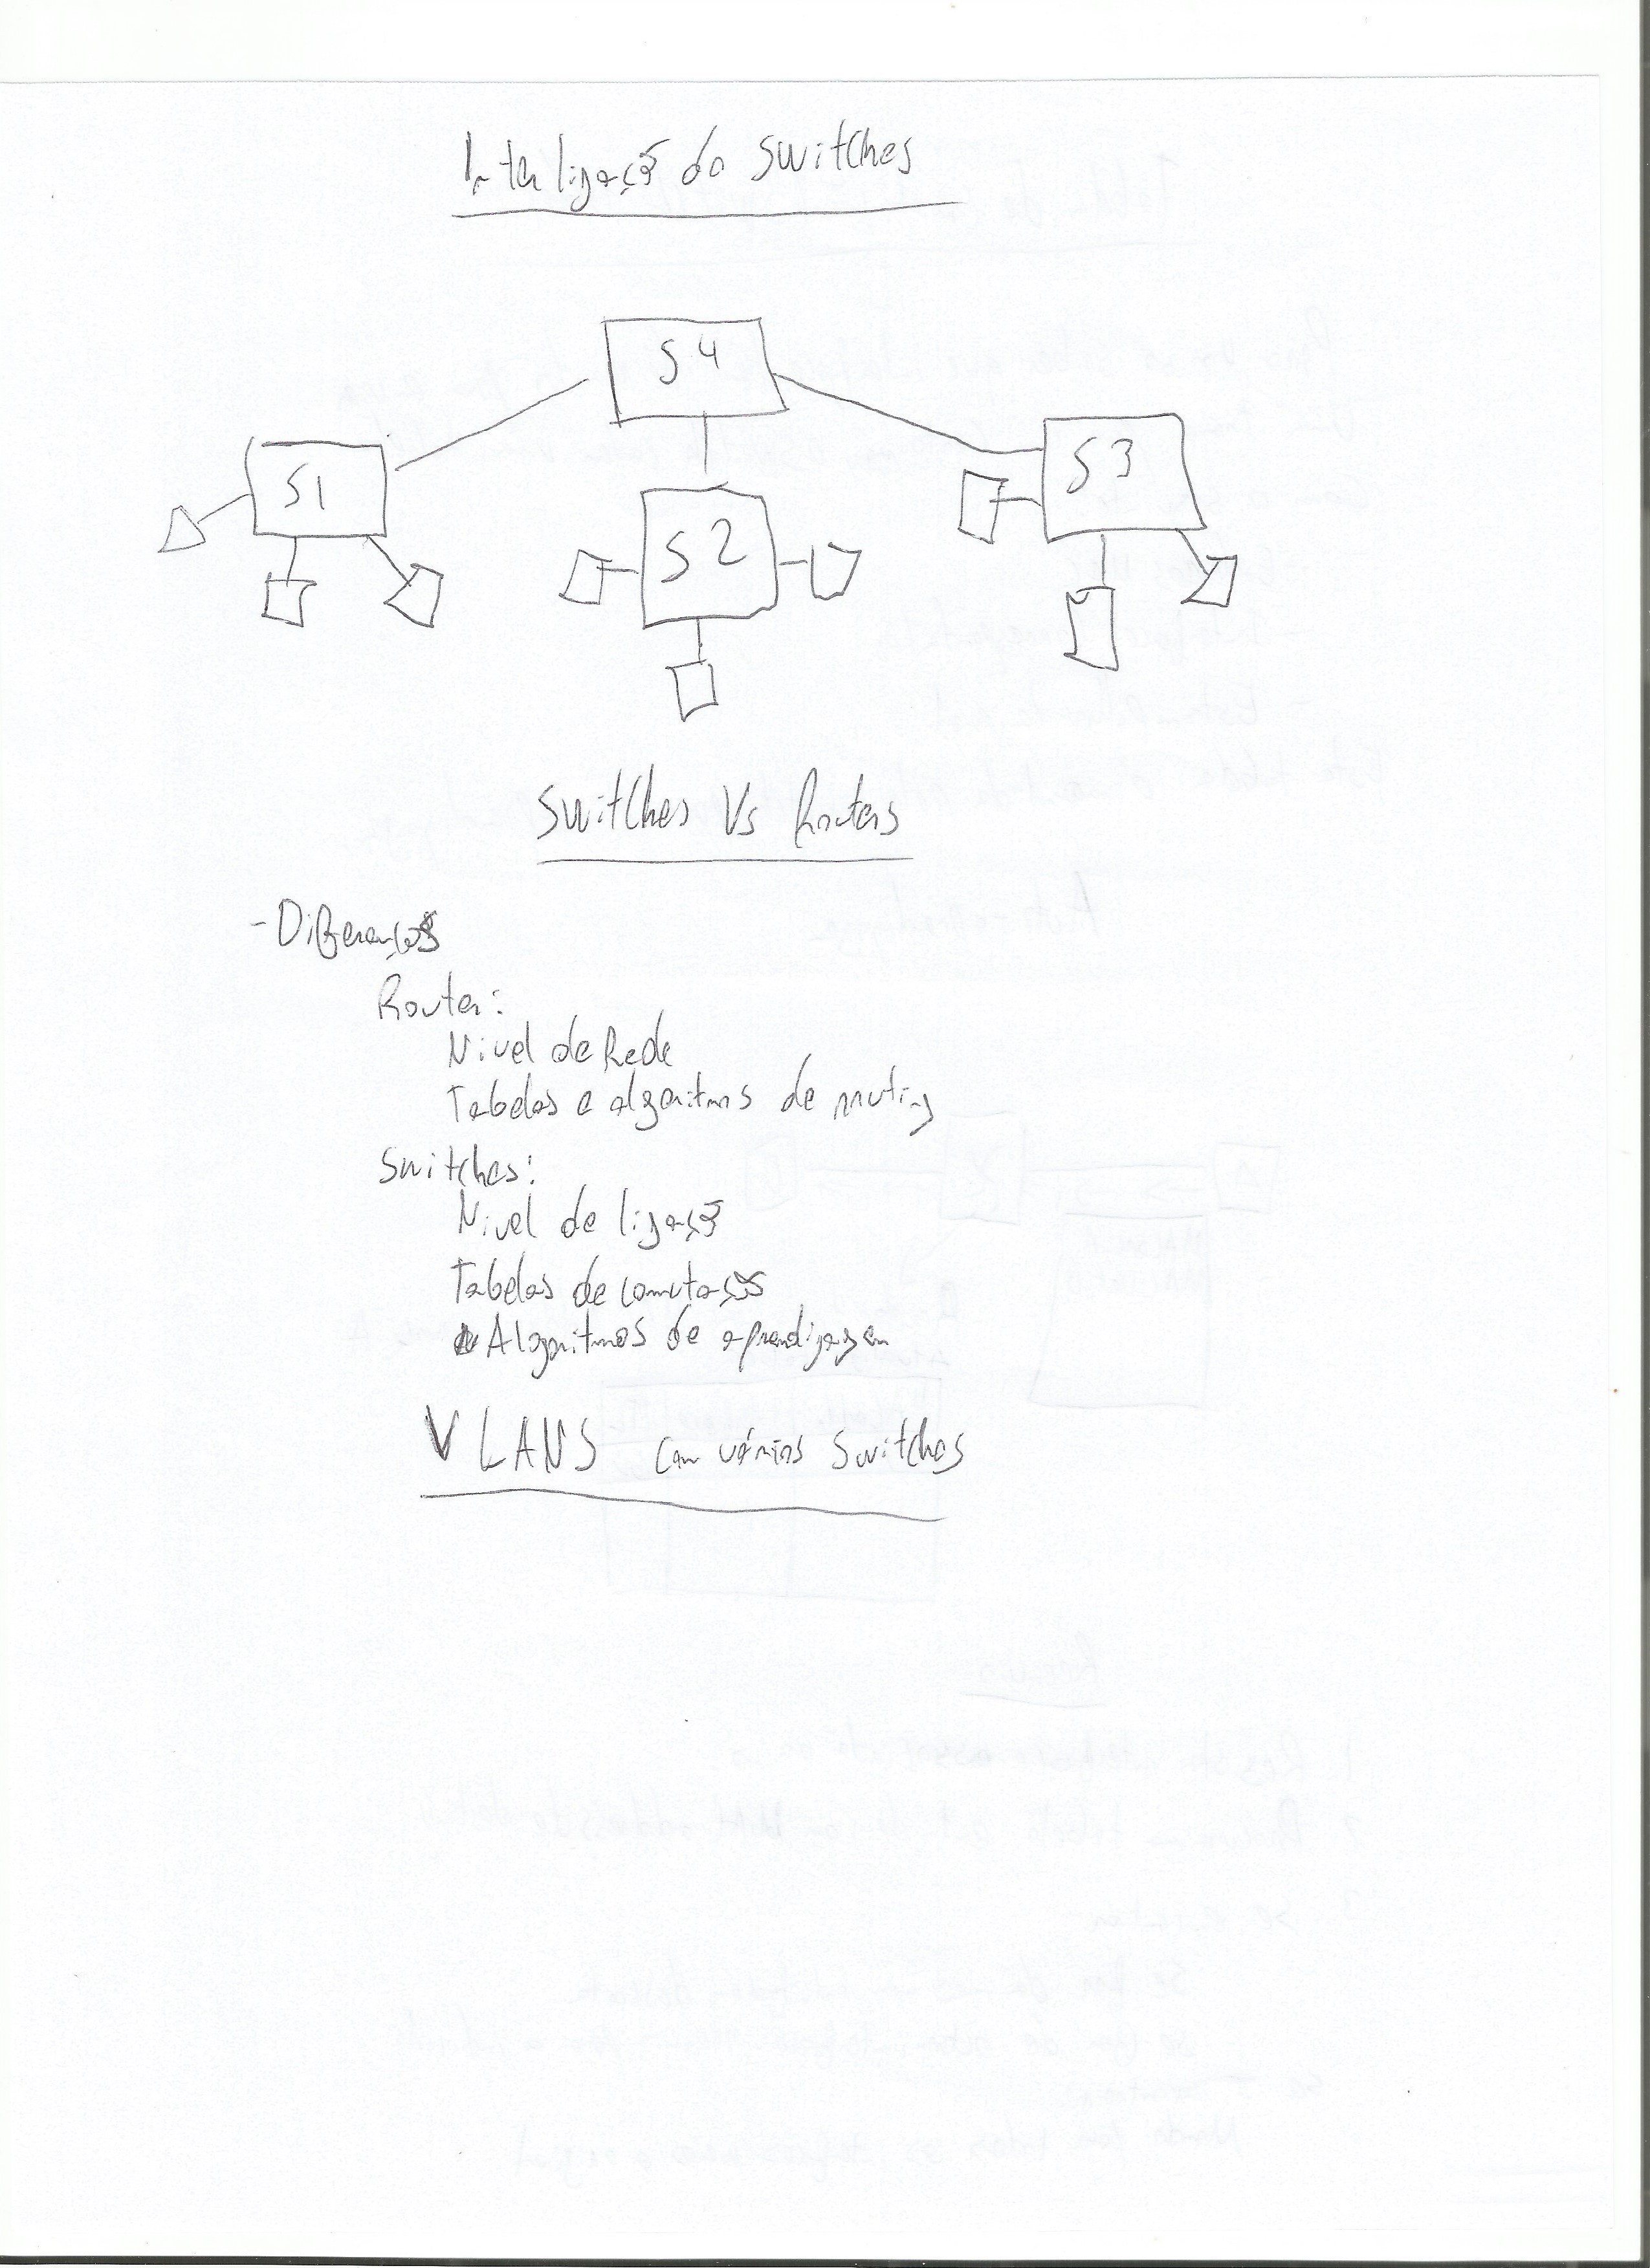 Interligação do Switches
S4
S1
S2
S3
Switches Vs Routers
- Diferenças
Router:
Nivel de Rede
Tabelas e algoritmos de routing
Switches:
Nivel de ligação
Tabelas de comutação
Algoritmos de aprendizagem
VLANS com vários Switches